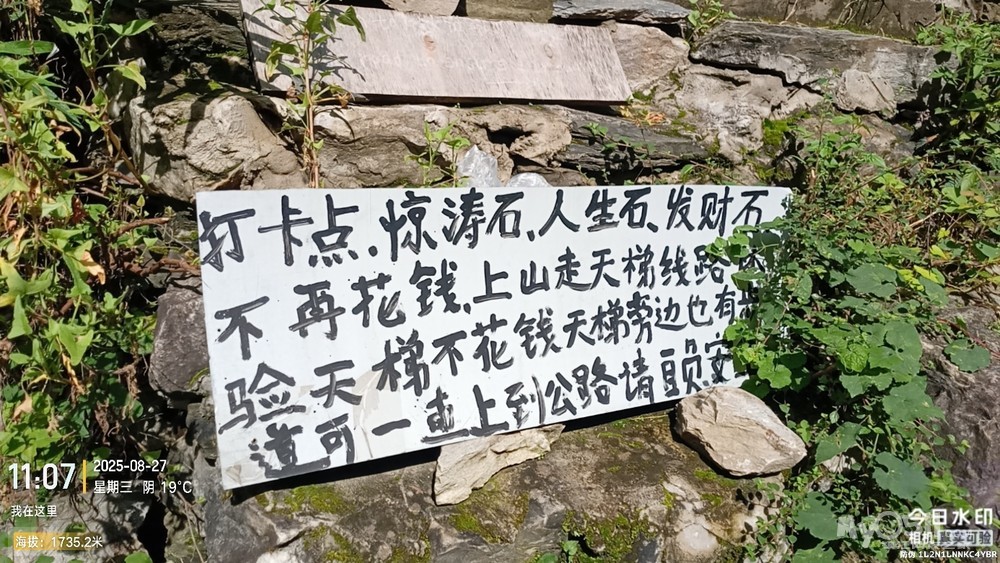 打卡点.惊涛石、人生石、发财石
不再花钱.上山走天梯线路
验天梯不花钱天梯旁边也有
道可一直上到公路请
11:07
2025-08-27
星期三 阴 19℃
我在这里
海拔:1735.2米
今日水印
相机 真实可验
防伪 1L2N1LNNKC4YBR